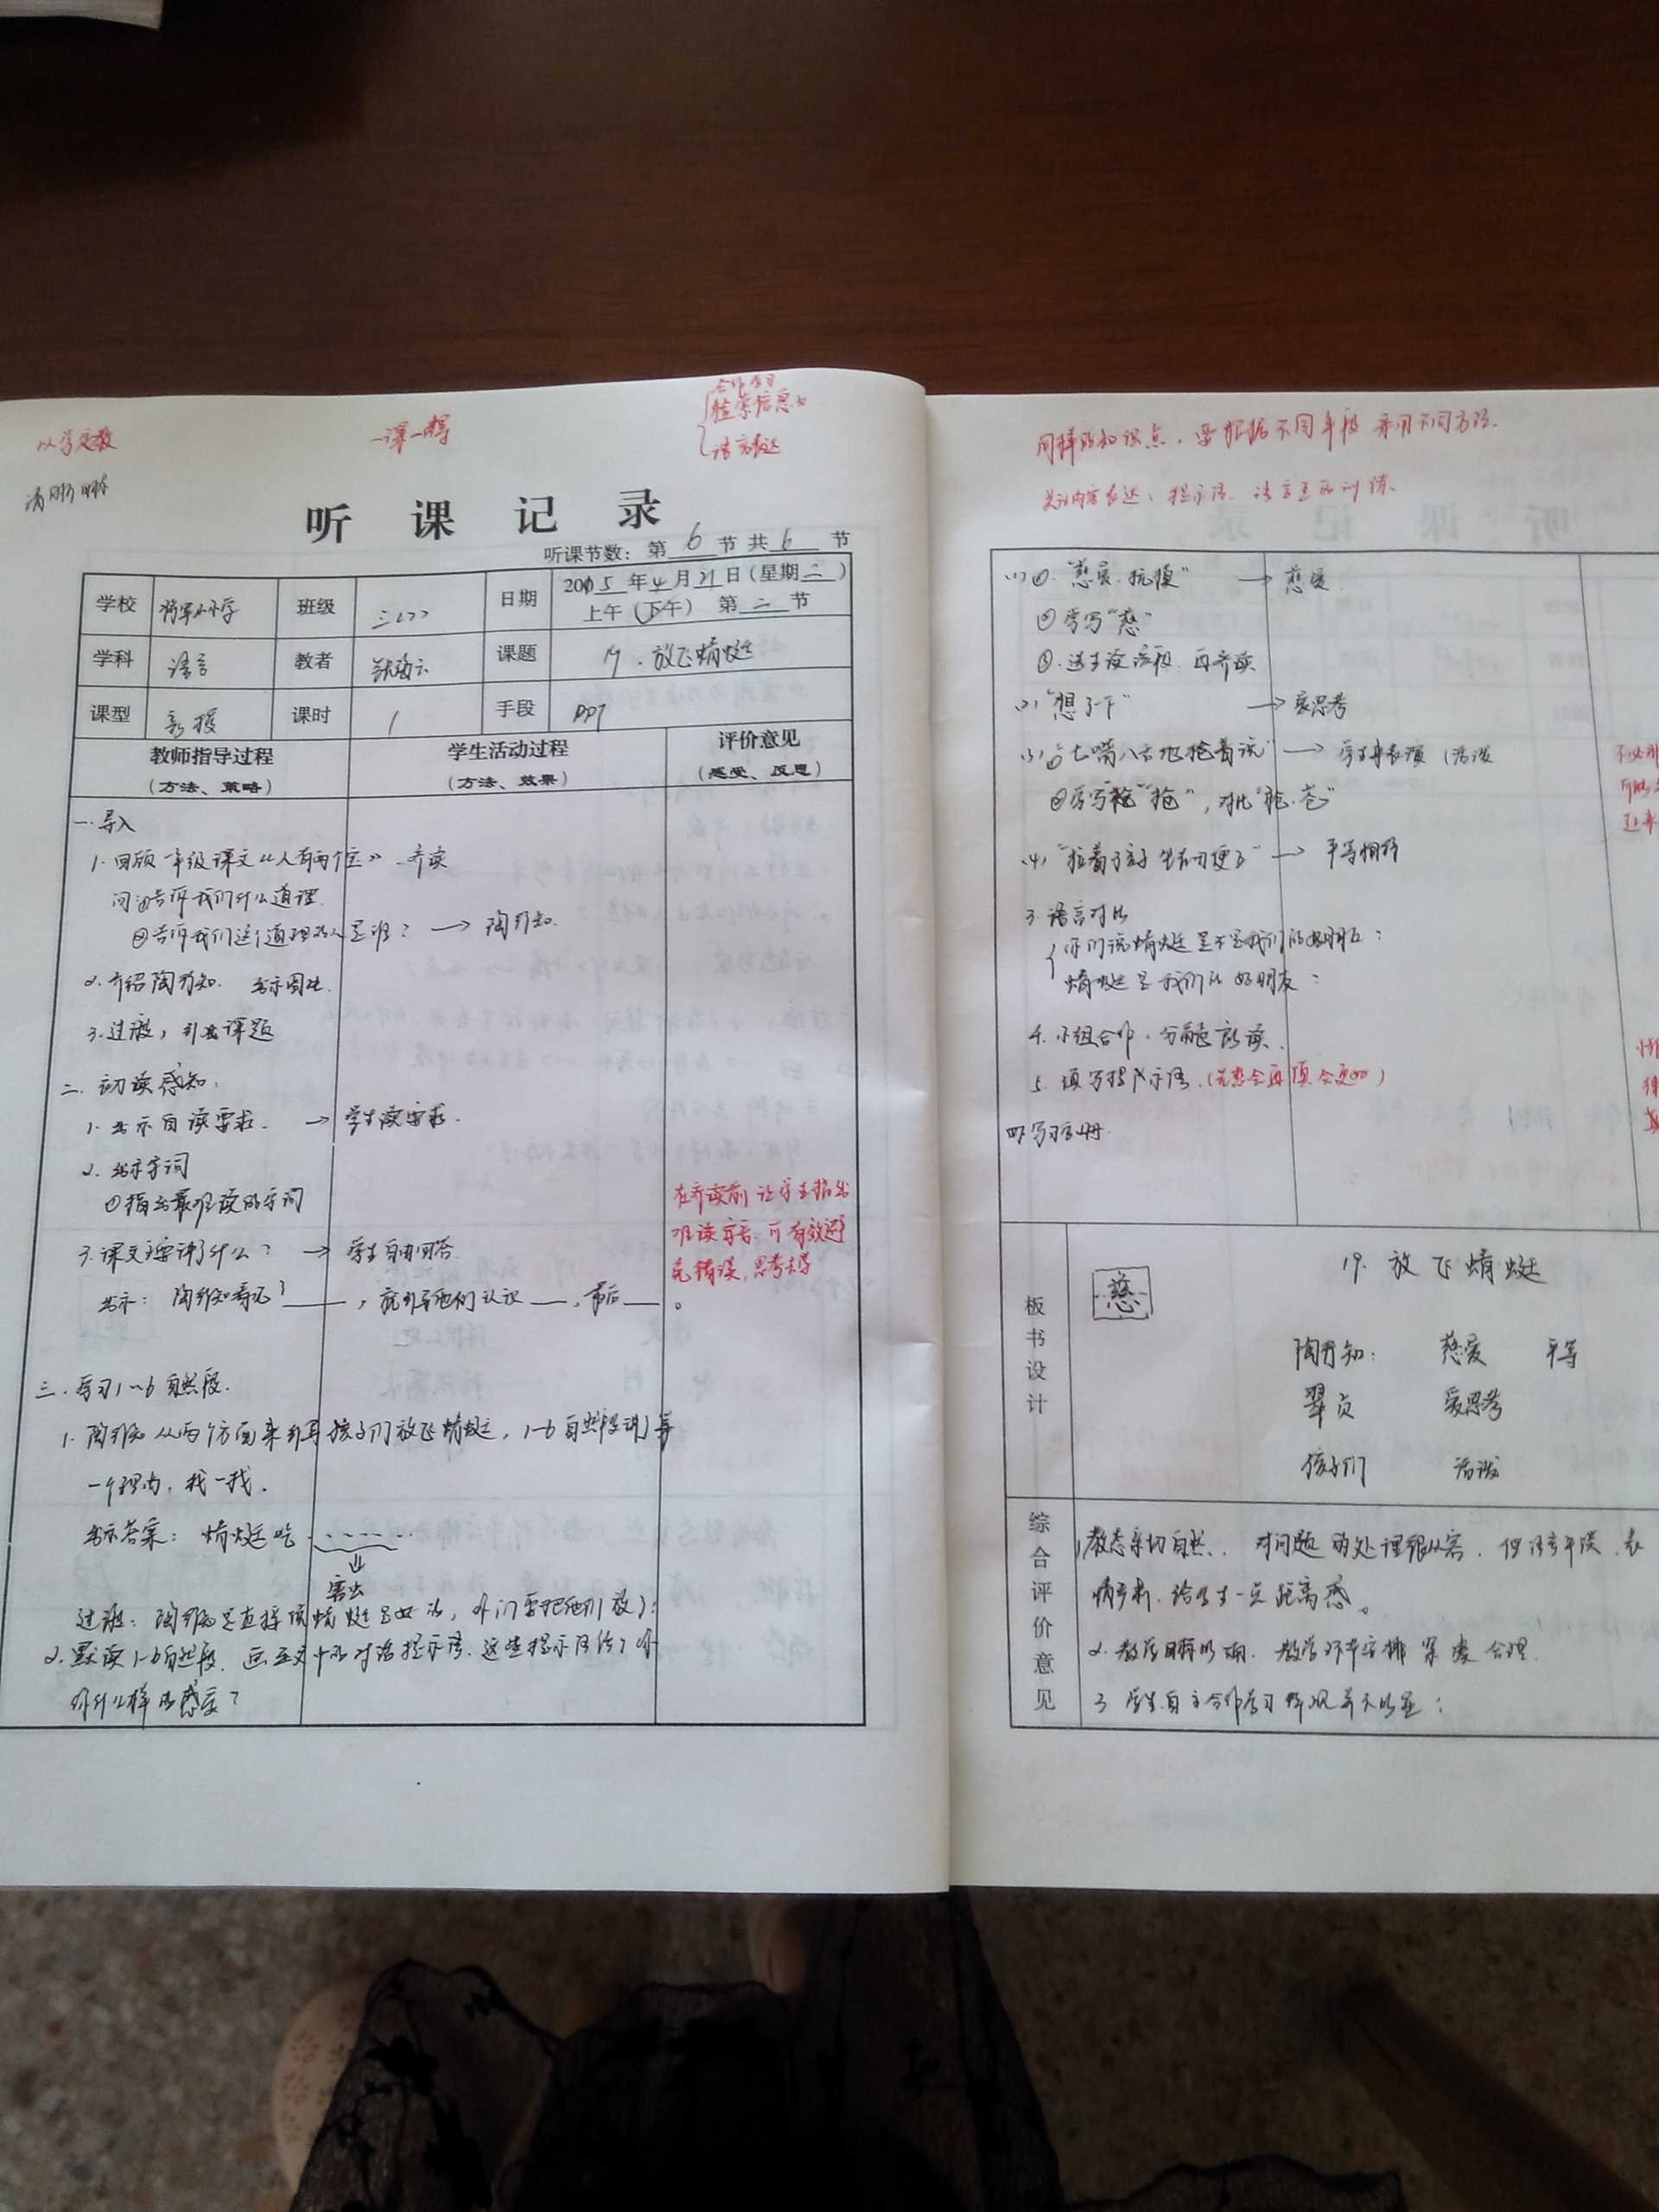 以学定教
一课一得
合作学习
检索信息
语言表达
清晰明
听课记录
听课节数：第 6 节 共 6 节
学校 将军小学 班级 三(7) 日期 2015年4月21日(星期二)
上午(下午) 第二节
学科 语言 教者 课题 19.放飞蜻蜓
课型 新授 课时 1 手段 PPT
教师指导过程 学生活动过程 评价意见
(方法、策略) (方法、效果) (感受、反思)
一.导入
1.回顾一年级课文《人有两个宝》.齐读
问①告诉我们什么道理.
②告诉我们这个道理的人是谁？→ 陶行知.
2.介绍陶行知. 出示图片.
3.过渡，引出课题
二.初读感知.
1.出示自读要求. → 学生读要求.
2.出示字词
①指出最难读的字词
3.课文主要讲了什么？ → 学生自由回答.
出示：陶行知看见了____，就引导他们认识__，最后__。
在齐读前让学生指出
难读字音.可有效避
免错误,思考
三.学习1~6自然段.
1.陶行知从两个方面来引导孩子们放飞蜻蜓，1-6自然段讲了第
一个理由，找一找.
出示答案：蜻蜓吃……
害虫
过渡：陶行知是直接说蜻蜓是益虫，你们要把他们放了.
2.默读1-6自然段.画出文中的对话提示语.这些提示语给了你
你什么样的感受？
同样的知识点，要根据不同年段采用不同方法.
关注内容表达、提示语、语言 的训练.
(1)①."慈爱.抚摸" → 慈爱.
②学写"慈"
③.送生读 段.再齐读
(2)"想了一下" → 爱思考
(3)①"七嘴八舌地抢着说" → 学生来表演(活泼
②学写"抢"，对比"枪.苍"
(4)"拉着了孩子坐在 " → 平等相待
3.语言对比
你们说蜻蜓是不是我们的好朋友：
蜻蜓是我们的好朋友：
4.小组合作.分角色朗读.
5.填写提示语.(先想会再填会更好)
四.写习字册.
板书设计
慈
19.放飞蜻蜓
陶行知： 慈爱 平等
翠贞 爱思考
孩子们 活泼
综合评价意见
1.教态亲切自然. 对问题的处理很从容.但语言平淡.表
情 .给学生一点距离感。
2.教学目标明确.教学环节安排紧凑合理.
3.学生自主合作学习体现并不明显；